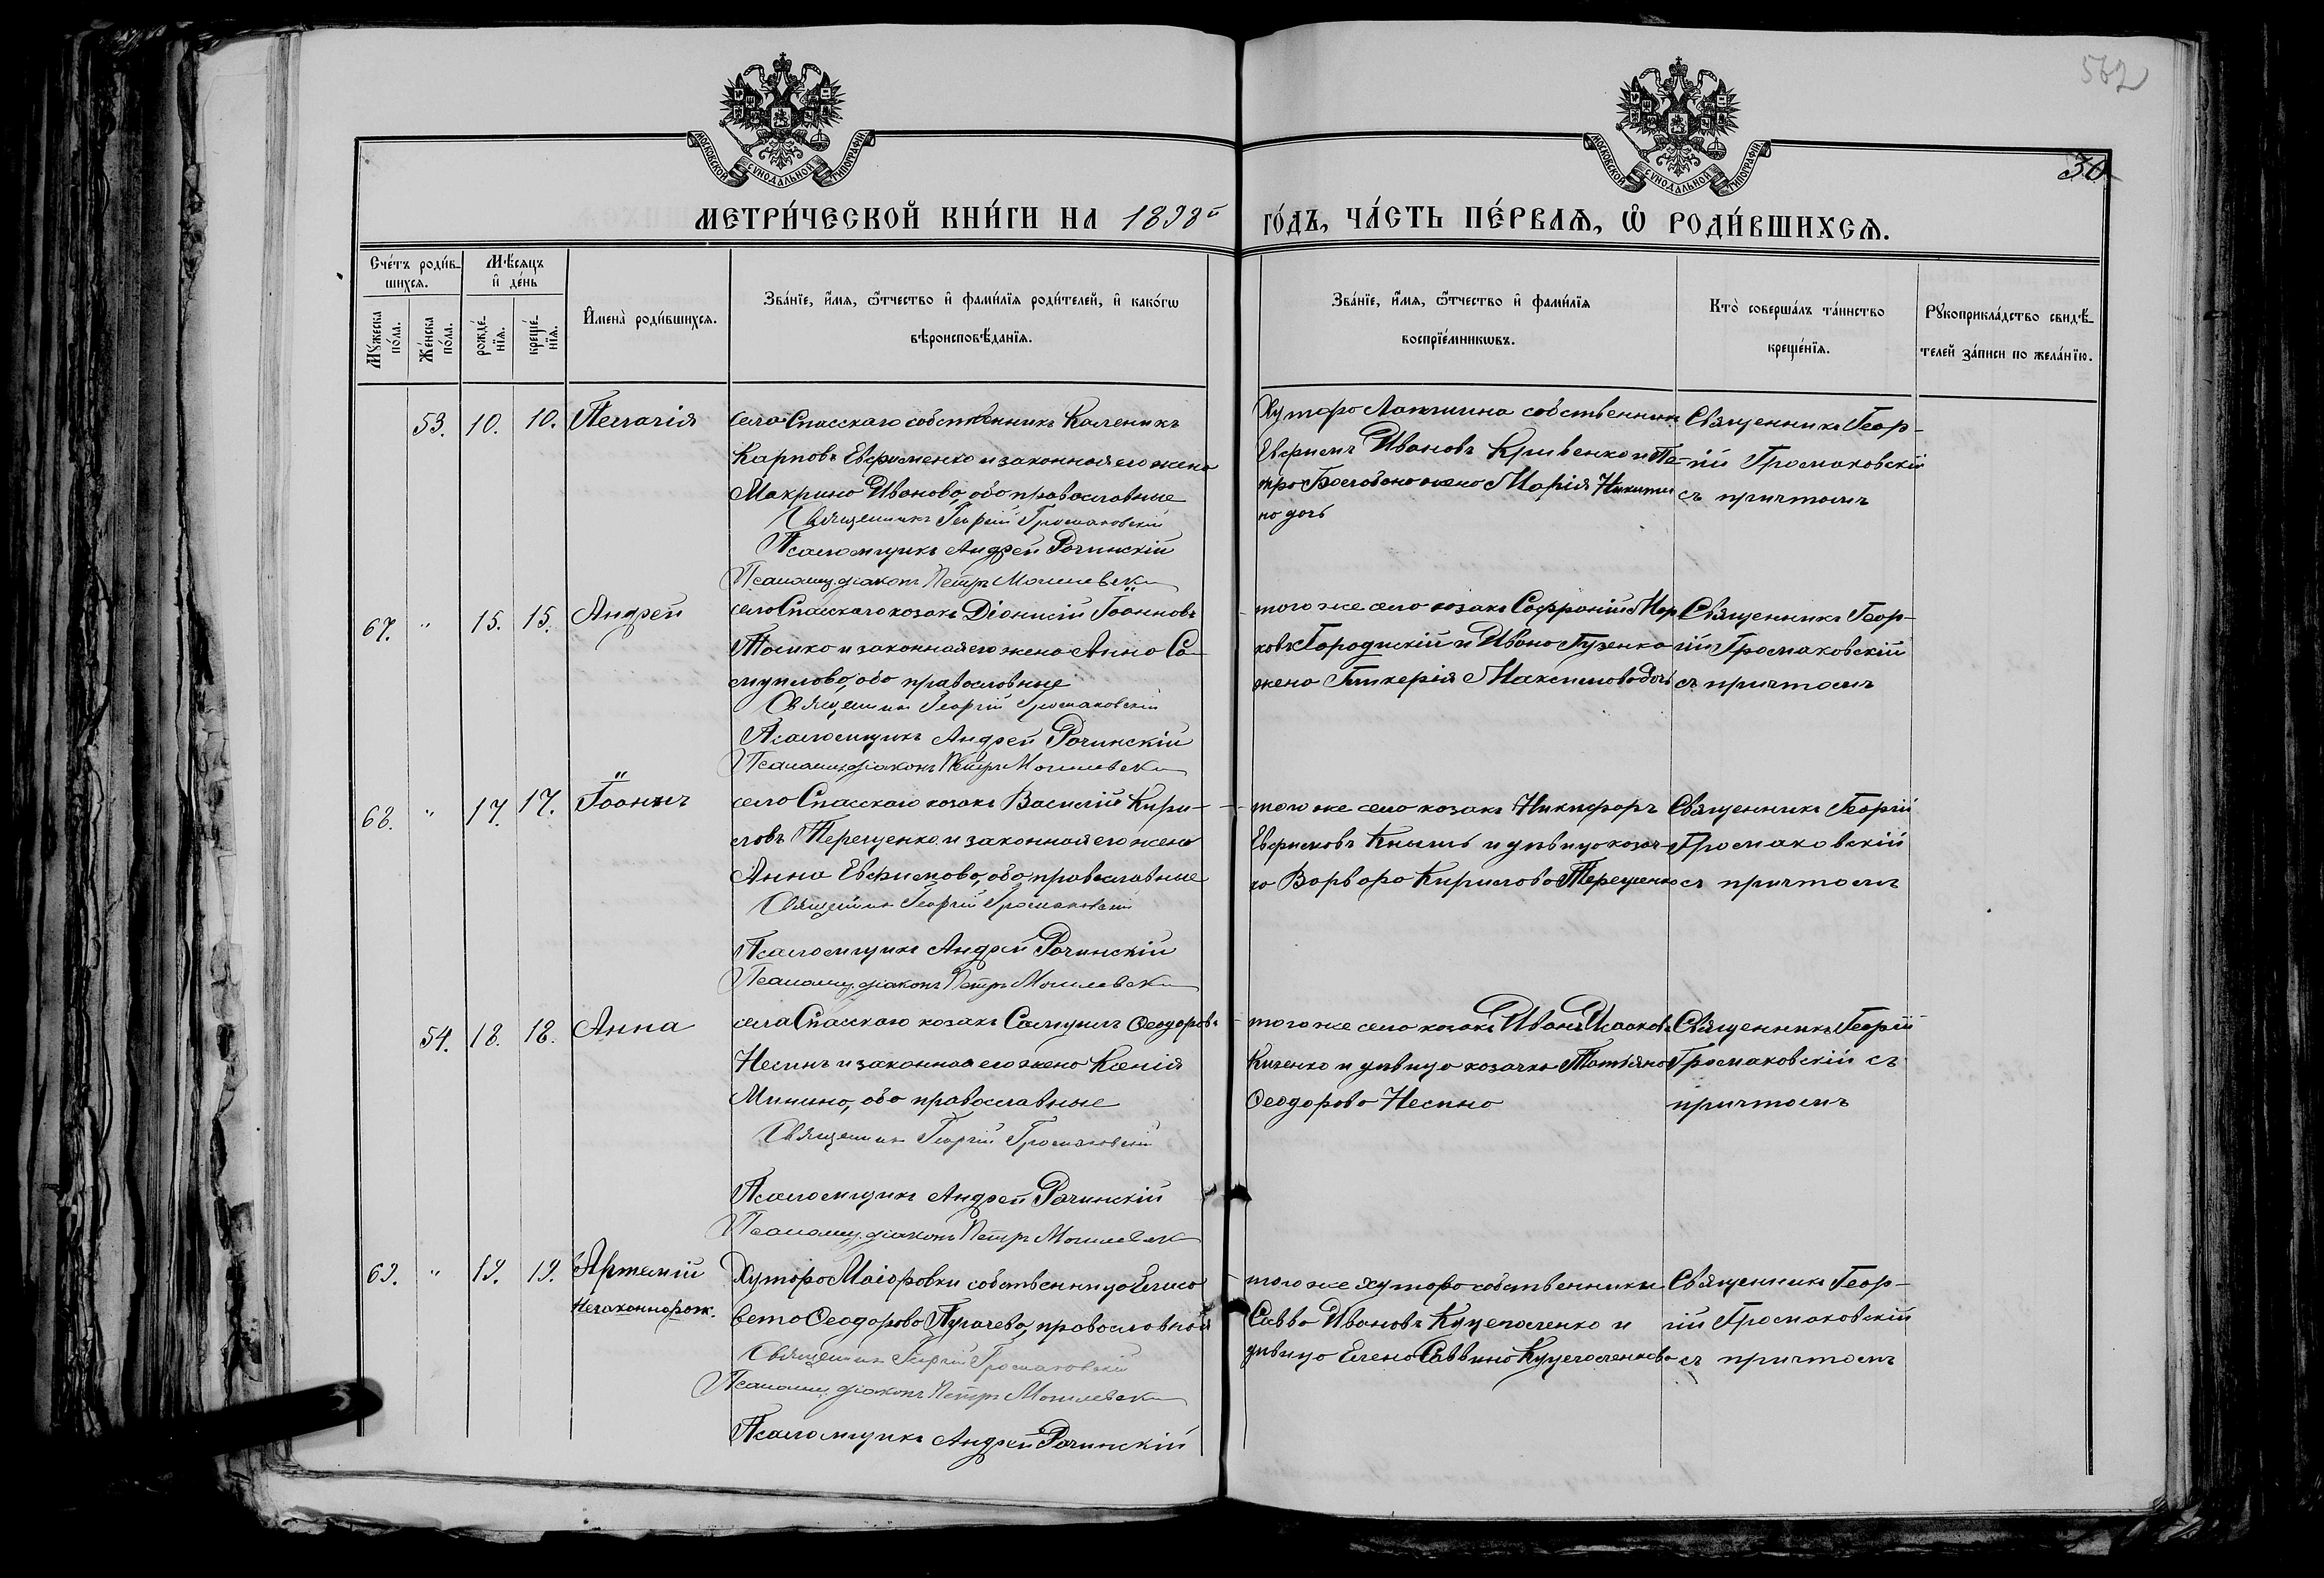 562
30
МОСКОВСКОЙ СѴНОДАЛЬНОЙ ТИПОГРАФІИ
МОСКОВСКОЙ СѴНОДАЛЬНОЙ ТИПОГРАФІИ
МЕТРИ́ЧЕСКОЙ КНИ́ГИ НА 1898й го́дъ, ЧА́СТЬ ПЕ́РВАѦ, Ѽ РОДИ́ВШИХСѦ.
Сче́тъ роди́в-
шихсѧ.
Мѣ́сѧцъ
и҆ де́нь
И҆мена̀ роди́вшихсѧ.
Зва́нїе, и҆́мѧ, ѻ҆́тчество и҆ фами́лїѧ роди́телей, и҆ како́гѡ
вѣроисповѣ́данїѧ.
Зва́нїе, и҆́мѧ, ѻ҆́тчество и҆ фами́лїѧ
воспрїе́мникѡвъ.
Кто̀ соверша́лъ та́инство
креще́нїѧ.
Рꙋкоприкла́дство свидѣ́-
телей за́писи по жела́нїю.
Мꙋ́жеска
по́ла.
Же́нска
по́ла.
рожде́-
нїѧ.
креще́-
нїѧ.
53. 10. 10. Пелагія
села Спасскаго собственникъ Каленикъ
Карповъ Евфименко и законная его жена
Макрина Иванова, оба православные
Священникъ Георгій Громаковскій
Псаломщикъ Андрей Рочинскій
Псаломщ. діаконъ Петръ Могилевск
Хутора Лапшина собственник
Евфимъ Ивановъ Кривенко и Пе-
тра жена Марія Никити
на дочь
Священникъ Геор-
гій Громаковскій
съ причтомъ
67. " 15. 15. Андрей
села Спасскаго козакъ Діонисій Іоанновъ
и законная его жена Анна Са-
муилова, оба православные
Священникъ Георгій Громаковскій
Псаломщикъ Андрей Рочинскій
Псаломщ. діаконъ Петръ Могилевск
того же села козакъ Софроній Мар
ковъ Городискій и Ивана Гузенка
жена Гликерія Максимова дочь
Священникъ Геор-
гій Громаковскій
съ причтомъ
68. " 17. 17. Іоаннъ
села Спасскаго козакъ Василій Кири-
ловъ Терещенко и законная его жена
Анна Евфимова, оба православные
Священникъ Георгій Громаковскій
Псаломщикъ Андрей Рочинскій
Псаломщ. діаконъ Петръ Могилевск
того же села козакъ Никифоръ
Евфимовъ Кнышъ и дѣвица козач-
ка Варвара Кирилова Терещенко
Священникъ Георгій
Громаковскій
съ причтомъ
54. 18. 18. Анна
села Спасскаго козакъ Самуилъ Ѳеодоровъ
Несинъ и законная его жена Ксенія
Минина, оба православные
Священникъ Георгій Громаковскій
Псаломщикъ Андрей Рочинскій
Псаломщ. діаконъ Петръ Могилевск
того же села козакъ Иванъ Исааковъ
Киченко и дѣвица козачка Татіяна
Ѳеодорова Несина
Священникъ Георгій
Громаковскій съ
причтомъ
69. " 19. 19. Артемій
Незаконнорож.
Хутора Маіоровки собственница Елиса
вета Ѳеодорова Пугачева, православная
Священникъ Георгій Громаковскій
Псаломщ. діаконъ Петръ Могилевск
Псаломщикъ Андрей Рочинскій
того же хутора собственники
Савва Ивановъ и
дѣвица Елена Саввина
Священникъ Геор-
гій Громаковскій
съ причтомъ